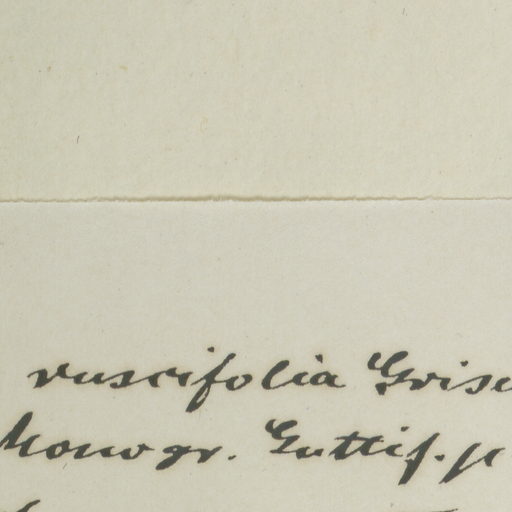 ruscifolia Grise
Monogr. Guttif. p